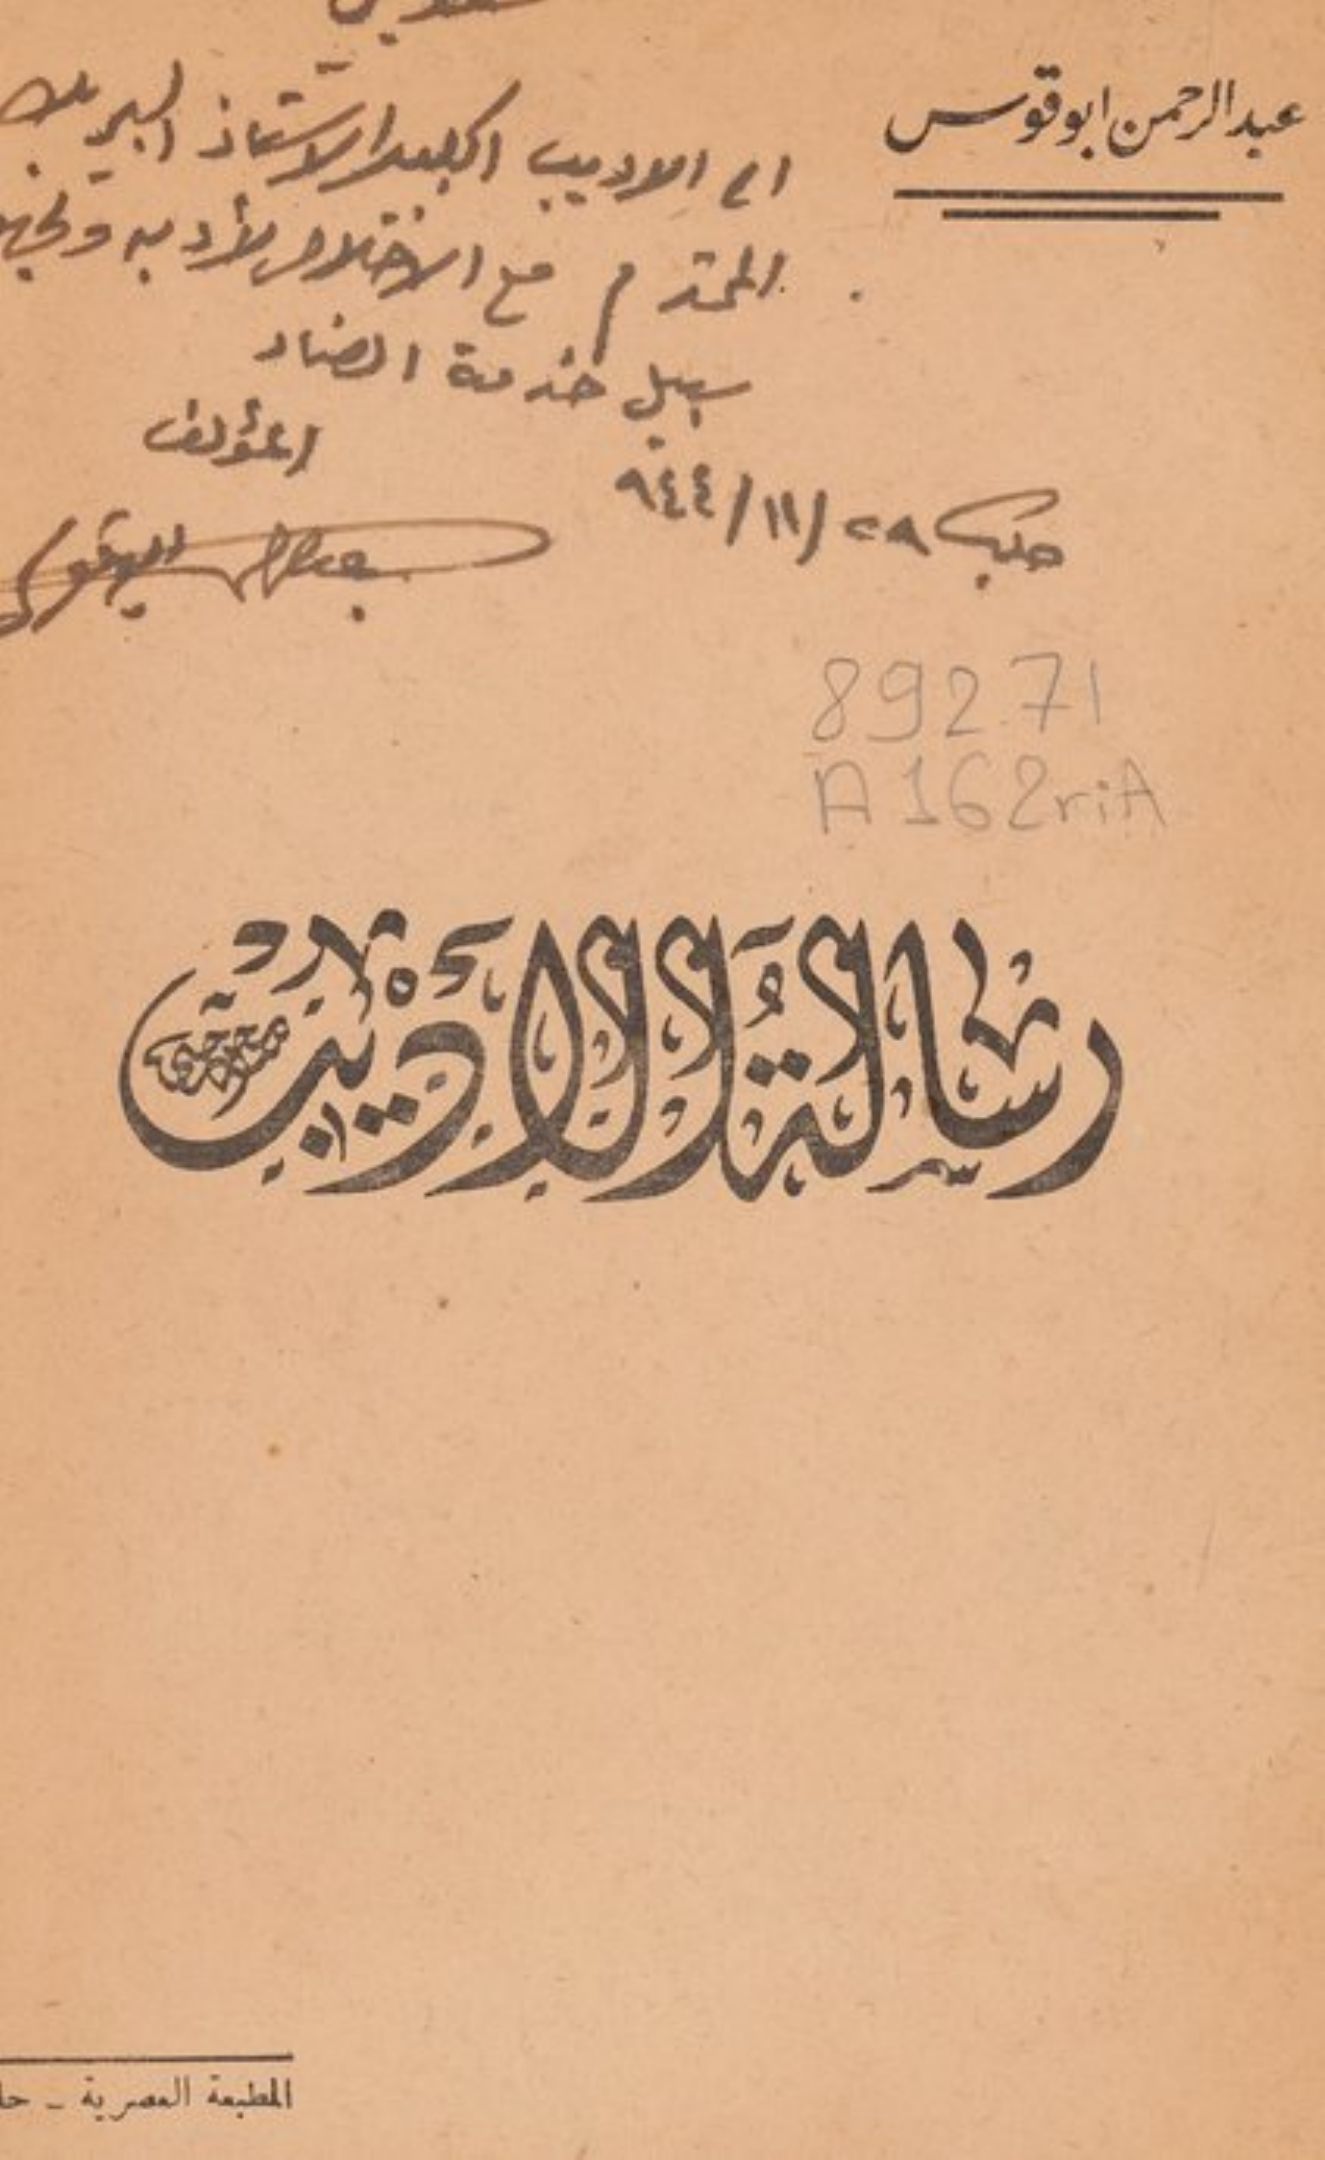 عبدالرحمن ابوقوس
الى الاديب الكبير الاستاذ
المحترم مع الاخلاص لأدبه
سبيل خدمة الضاد
المؤلف
حلب ٢٨/١١/٩٤٤
892.71
A162riA
رسالة الاديب
المطبعة العصرية ـ حل